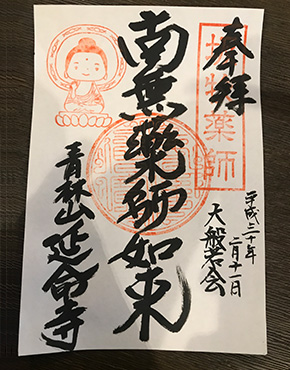 奉拝
薬師
平成三十年
二月十一日
大般若会
南無薬師如来
青林山延命寺